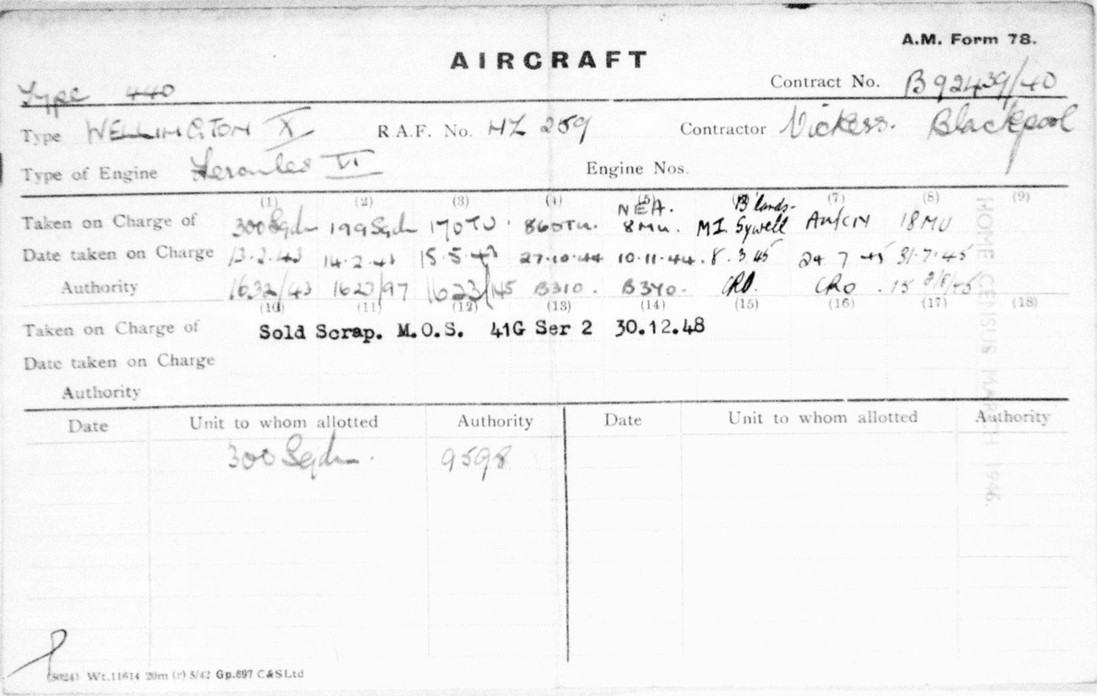 A.M. Form 78.
AIRCRAFT
Type 440
Contract No. B92439/40
Type WELLINGTON X R.A.F. No. HZ 259 Contractor Vickers. Blackpool
Type of Engine Hercules VI Engine Nos.
(1) (2) (3) (4) (5) (6) (7) (8) (9)
Taken on Charge of 300 Sqdn 199 Sqdn 17 OTU 86 OTU. NEA. 8MU. B'lands. M.I. Sywell 18MU
Date taken on Charge 13.2.43 14.2.43 15.5.43 27.10.44 10.11.44. 8.3.45 24 7 45 31.7.45
Authority 1632/43 1623/97 1623/145 B310. B340. CRD. CRO.
(10) (11) (12) (13) (14) (15) (16) (17) (18)
Taken on Charge of Sold Scrap. M.O.S. 41G Ser 2 30.12.48
Date taken on Charge
Authority
Date Unit to whom allotted Authority Date Unit to whom allotted Authority
300 Sqdn. 9598
HOME CENSUS MARCH 1946.
(S0243) Wt.11614 20m (r) 5/42 Gp.697 C&S Ltd